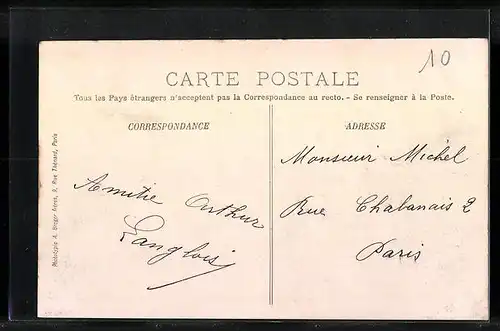 10
CARTE POSTALE
Tous les Pays étrangers n'acceptent pas la Correspondance au recto. - Se renseigner à la Poste.
CORRESPONDANCE
Amitié Arthur
Langlois
ADRESSE
Monsieur Michel
Rue Chabanais 2
Paris
Phototypie A. Breger frères, 9, Rue Thénard, Paris